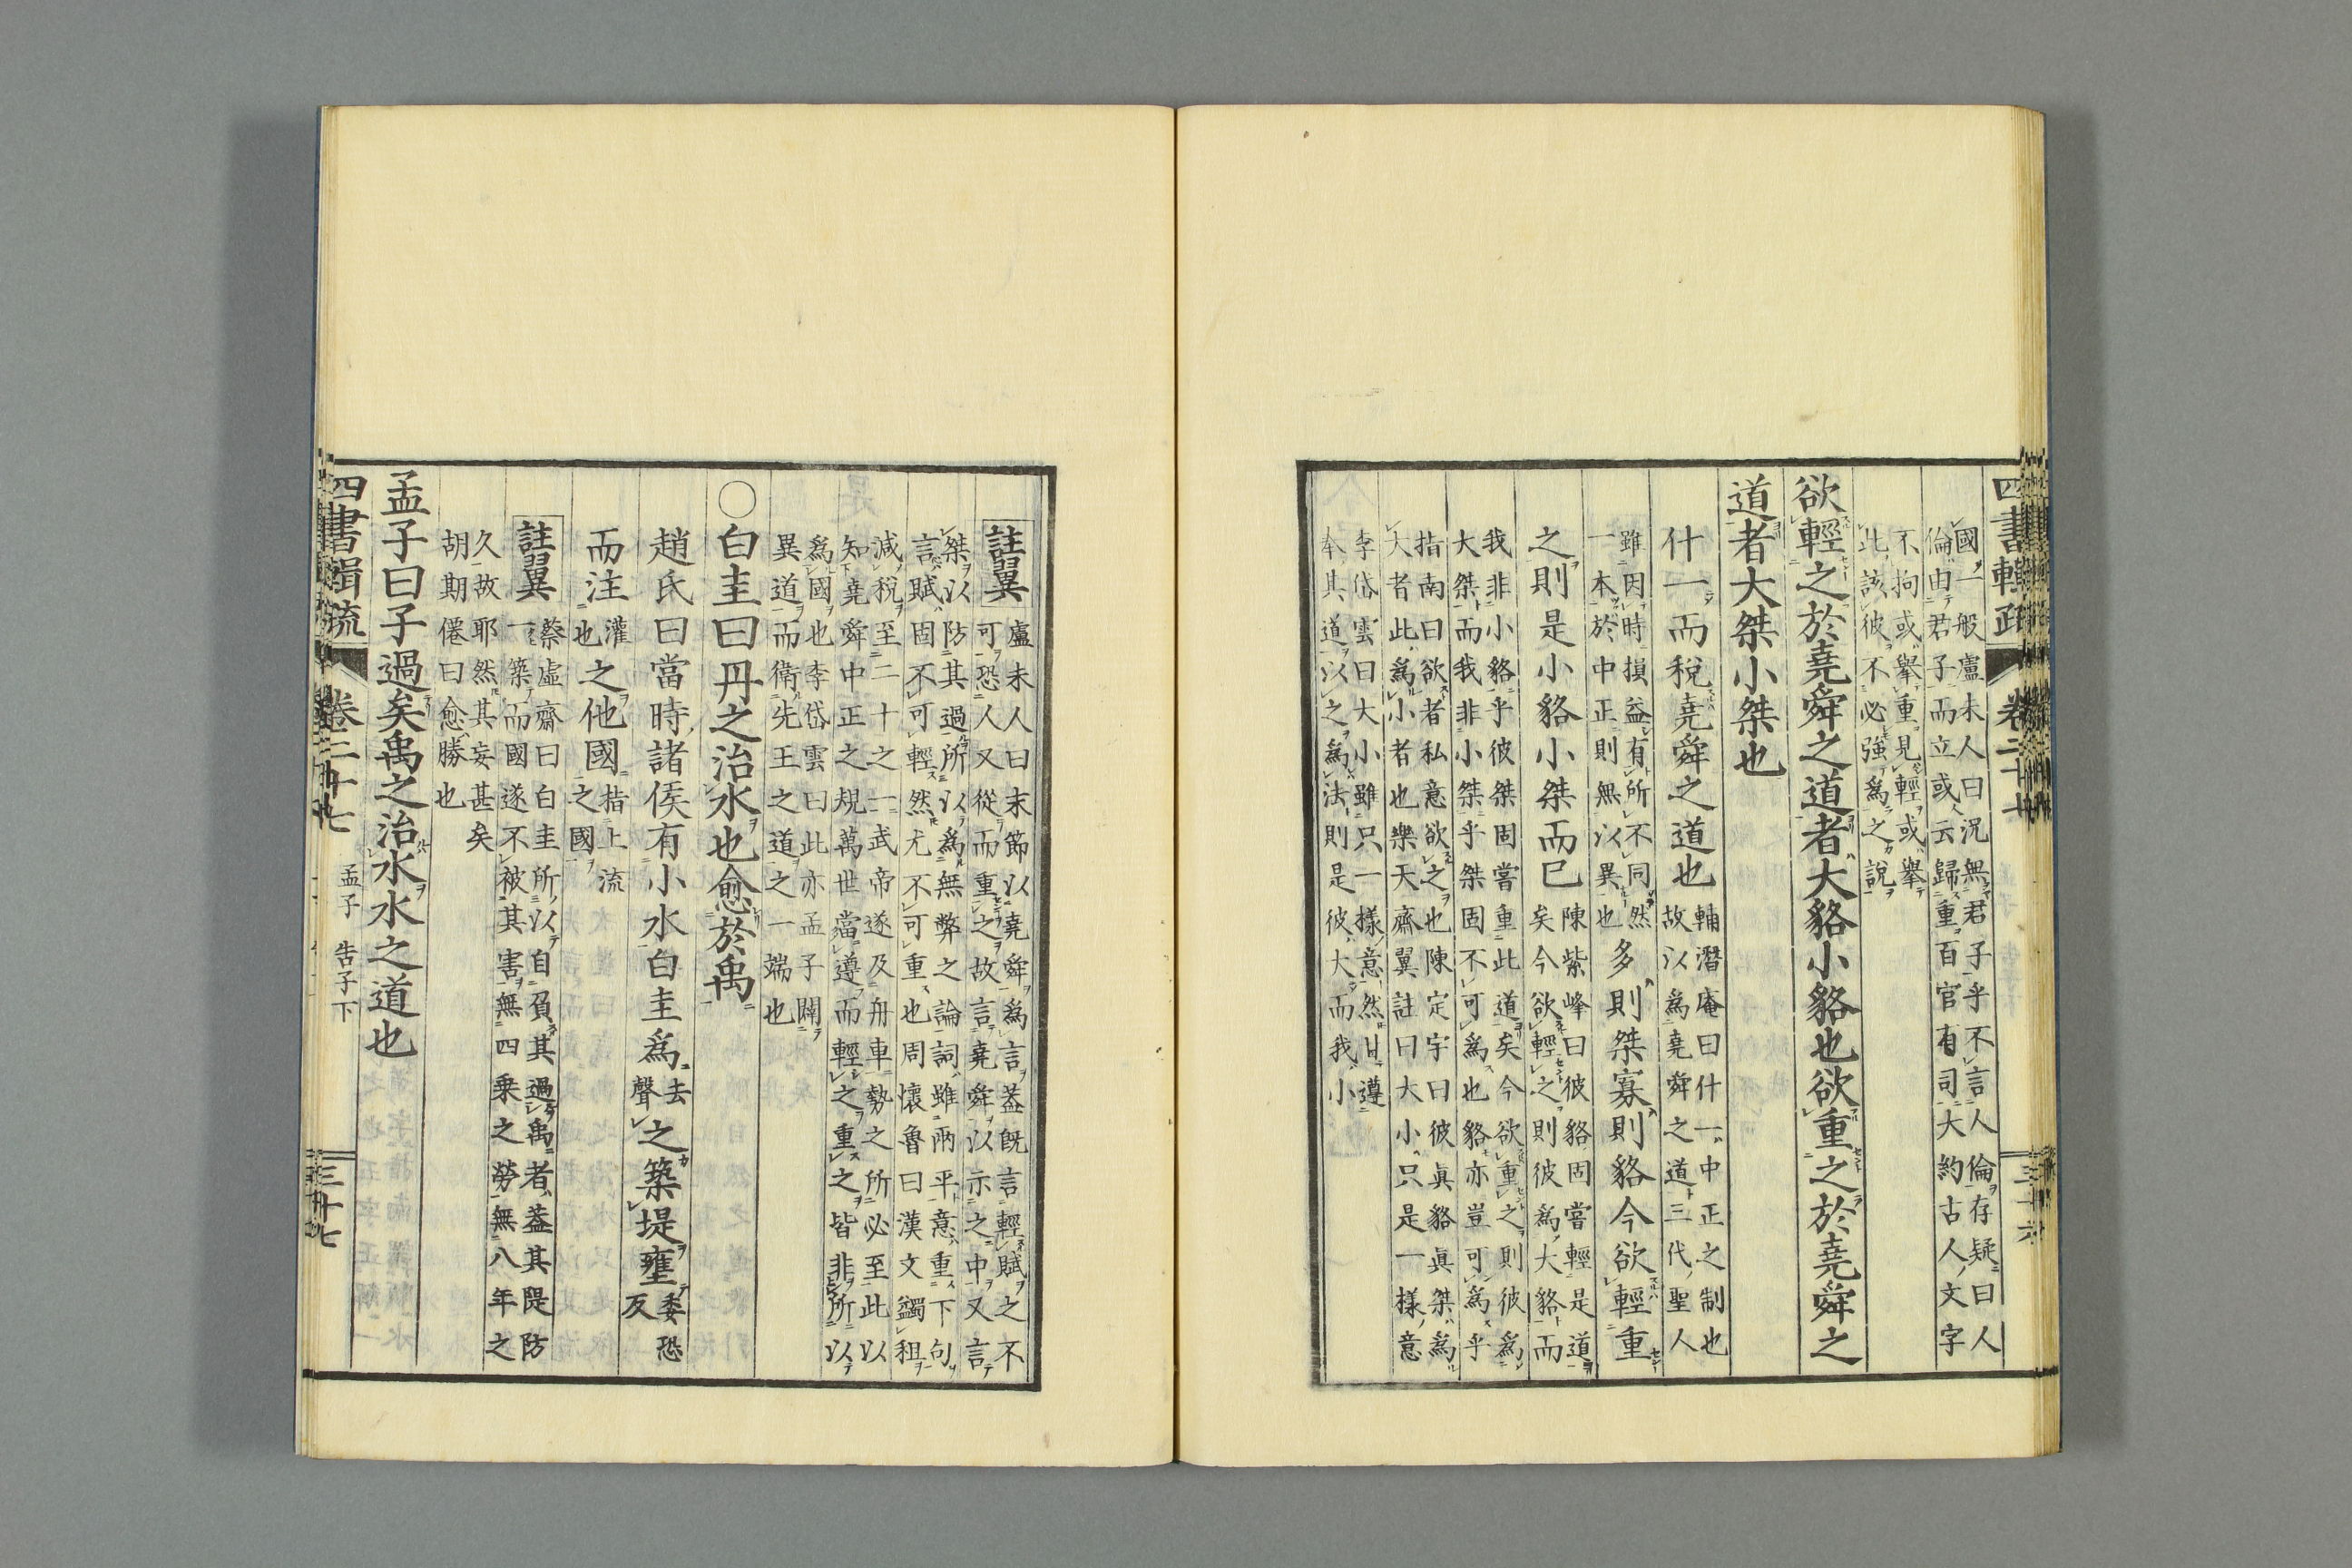 四書輯疏 卷二十七 三十六
國一般盧未人曰況無君子乎不言人倫存疑曰人
倫由君子而立或云歸重百官有司大約古人文字
不拘或舉重見輕或舉
此該彼不必強爲之說
欲輕之於堯舜之道者大貉小貉也欲重之於堯舜之
道者大桀小桀也
什一而稅堯舜之道也
輔潛庵曰什一中正之制也
故以爲堯舜之道三代聖人
雖因時損益有所不同然
一本於中正則無以異也
多則桀寡則貉今欲輕重
之則是小貉小桀而已
陳紫峰曰彼貉固嘗輕是道
矣今欲輕之則彼爲大貉而
我非小貉乎彼桀固嘗重此道矣今欲重之則彼爲
大桀而我非小桀乎桀固不可爲也貉亦豈可爲乎
指南曰欲者私意欲之也陳定宇曰彼眞貉眞桀爲
大者此爲小者也樂天齋翼註曰大小只是一樣意
李岱雲曰大小雖只一樣意然甘遵
奉其道以之爲法則是彼大而我小
註翼
盧未人曰末節以堯舜爲言葢旣言輕賦之不
可恐人又從而重之故言堯舜以示之中又言
桀以防其過所以爲無弊之論詞雖兩平意重下句
言賦固不可輕然尤不可重也周懷魯曰漢文蠲租
減稅至二十之一武帝遂及舟車勢之所必至此以
知堯舜中正之規萬世當遵而輕之重之皆非所以
爲國也李岱雲曰此亦孟子闢
異道而衛先王之道之一端也
○白圭曰丹之治水也愈於禹
趙氏曰當時諸侯有小水白圭爲
去
聲
之築堤壅
委恐
反
而注
灌
也
之他國
指上流
之國
註翼
蔡虛齋曰白圭所以自負其過禹者葢其隄防
一築而國遂不被其害無四乗之勞無八年之
久故耶然其妄甚矣
胡期僊曰愈勝也
孟子曰子過矣禹之治水水之道也
四書輯疏 卷二十七 孟子 告子下 三十七